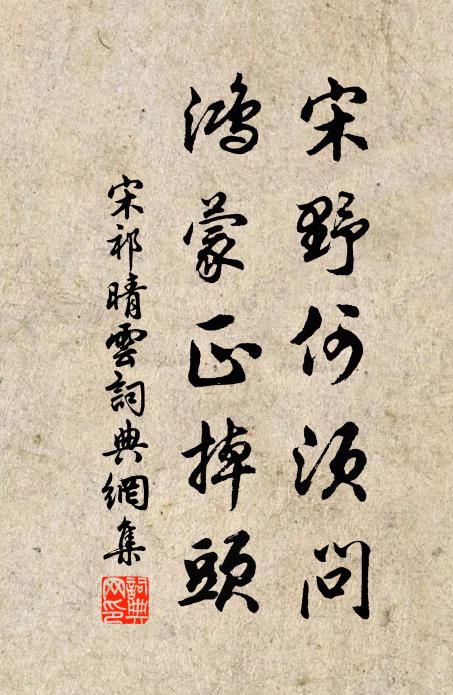 宋野何須問
鴻蒙正掉頭
宋祁晴雲詞典網集
詞典網印